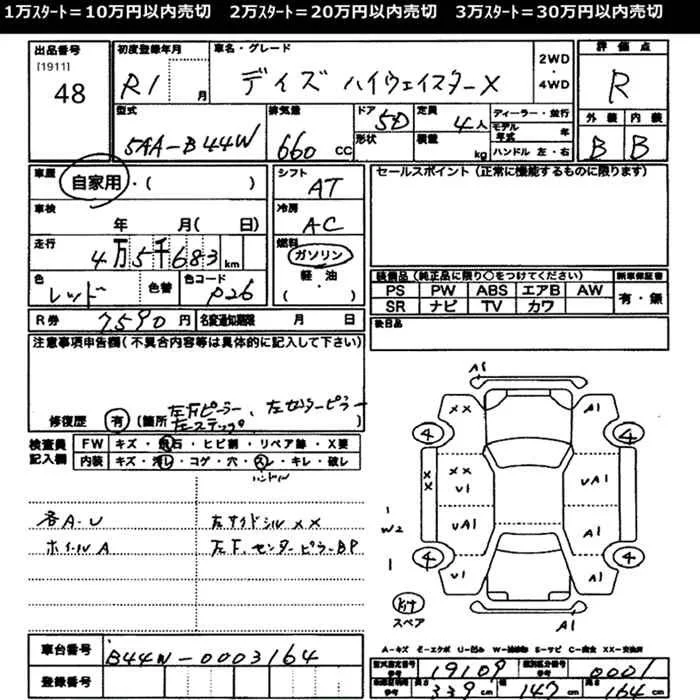 1万ｽﾀｰﾄ＝10万円以内売切　2万ｽﾀｰﾄ＝20万円以内売切　3万ｽﾀｰﾄ＝30万円以内売切
出品番号
[1911]
48
初度登録年月
R1 月
車名・グレード
デイズ ハイウェイスターX
2WD
・
4WD
評価点
R
外装 内装
B B
型式
5AA-B44W
排気量
660 CC
ドア
5D
形状
定員
4人
積載
kg
ディーラー・並行
モデル年式 年
ハンドル 左・右
車歴
自家用・( )
シフト
AT
セールスポイント (正常に機能するものに限ります)
車検
年 月( 日)
冷房
AC
走行
4万5千683km
燃料
ガソリン
・軽・油
( )
色
レッド
色替
色コード
P26
装備品 (純正品に限り○をつけてください)
新車保証書
PS PW ABS エアB AW
SR ナビ TV カワ
有・無
R券 7590円
名変通知期限 月 日
後日品
注意事項申告欄 (不具合内容等は具体的に記入して下さい)
修復歴 有 (箇所 左下ピラー、左センターピラー
左ステップ )
検査員
記入欄
FW キズ・飛石・ヒビ割・リペア跡・X要
内装 キズ・汚レ・コゲ・穴・スレ・キレ・破レ
ハンドル
各A-U
左サイドシルXX
ホイールA
左下、センターピラーBP
A1
XX
A1
4
4
XX
XX
U1
UA1
1
W2
1
UA1
A1
4
4
U1
A1
スペア
A1
A-キズ E-エクボ U-凹み W-補修跡 S-サビ C-腐食 XX-交換済
車台番号
B44W-0003164
登録番号
型式指定番号
参考
19109
類別区分番号
参考
0001
長さ
339cm
幅
147cm
高さ
164cm